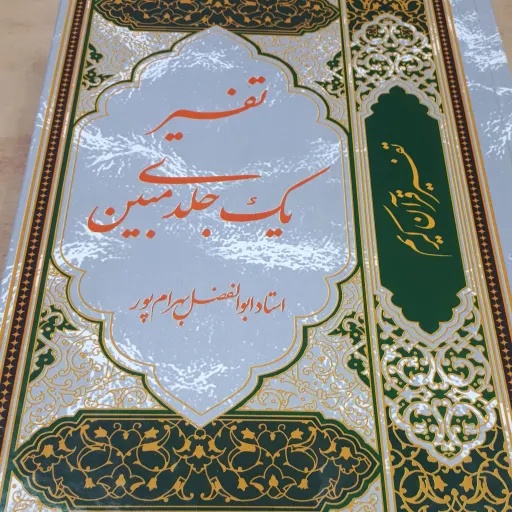 تفسیر
یک جلدی مبین
استاد ابوالفضل بهرام پور
تفسیر قرآن کریم